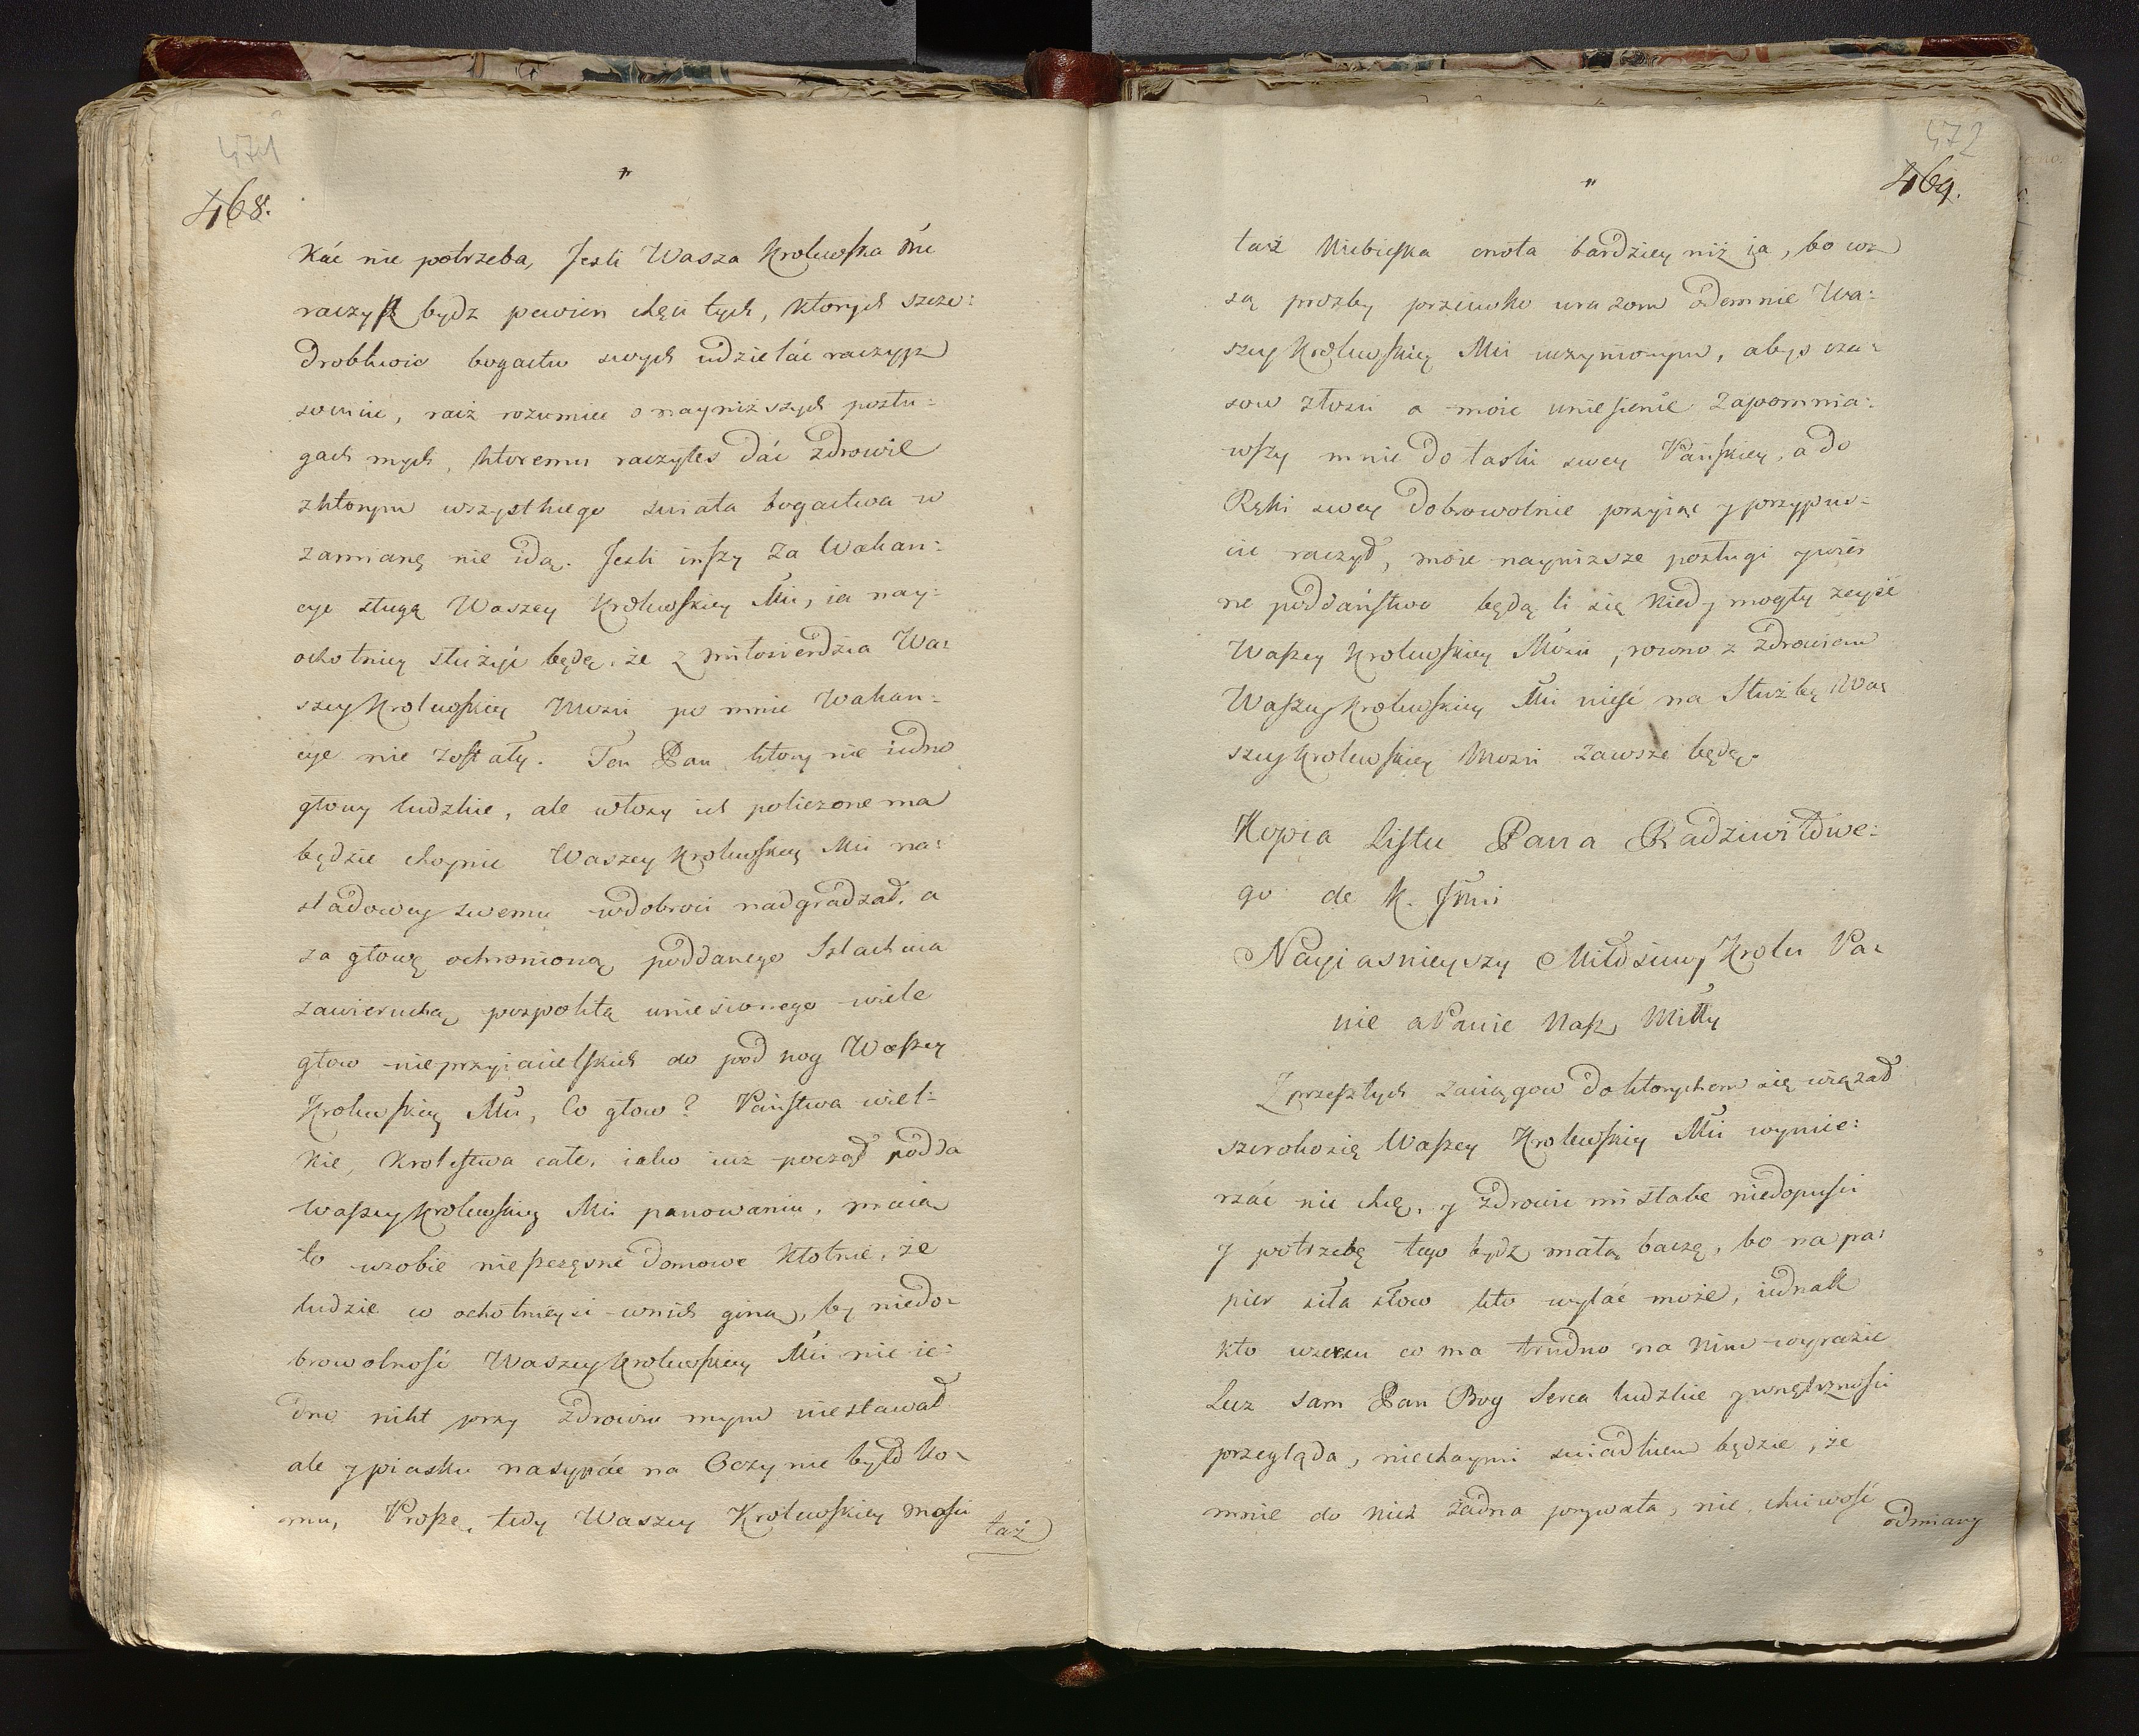 471
468.
"
Kác nie potrzeba, Jesli Wasza Krolewska Mć
raczysz bydz pewien chęci tych, ktorych szcze:
drobliwie bogactw swych udzieláć raczysz
sowicie, racz rozumiec o nayniższych posłu:
gach mych, ktoremu raczyłes dác zdrowie
zktorym wszystkiego swiata bogactwa w
zamianę nie idą. Jesli inszy za Wakan:
cye sługą Waszey Krolewskiey Mci, ia nay:
ochotniey służyć będę, że z miłosierdzia Wa:
szey Krolewskiey Mosci po mnie Wakan:
cye nie zostały. Ten Pan ktory nie iedno
głowy ludzkie, ale włosy ich policzone ma
będzie choynie Waszey Krolewskiey Mci na:
sladowcy swemu wdobroci nadgradzał, a
za głowę ochronioną poddanego Szlachcica
zawieruchą pospolitą uniesionego wiele
głow nieprzyiacielskich do pod nog Waszey
Krolewskiey Mci, Co głow? Państwa wiel:
kie, Krolestwa całe, iako iuż począł podda
Waszey Krolewskiey Mci panowaniu, maią
to wsobie nieszczęsne domowe kłotnie, że
ludzie co ochotnieysi wnich giną, by niedo:
browolność Waszey Krolewskiey Mci nie ie:
dno nikt przy zdrowiu mym niestawał
ale y piasku nasypáć na Oczy nie było ko:
mu, Proszę tedy Waszey Krolewskiey Mosci
taż
472
469.
"
taż Niebieska cnota bardziey niż ia, bo wz
są prozby przeciwko urazom odemnie Wa:
szey Krolewskiey Mci uczynionym, abys cza:
sow złosci a moie uniesienie zapomnia:
wszy mnie do łaski swey Pańskiey, a do
Ręki swey dobrowolnie przyiąc y przypus:
cic raczył, moie nayniższe posługi y wier
ne poddaństwo będą li się kiedy mogły zeyść
Waszey Krolewskiey Mosci, rowno z zdrowiem
Waszey Krolewskiey Mci nieść na Służbę Wa:
szey Krolewskiey Mosci zawsze będę.
Kopia Listu Pana Radziwiłowe:
go do K. Jmci
Nayiasnieyszy Miłosciwy Krolu Pa:
nie a Panie Nasz Miłły
Z przeszłych zaciągow do ktorychem się wiązał
szerokosię Waszey Krolewskiey Mci wymie:
rzác nie chcę, y zdrowie mi słabe niedopusci
y potrzebę tego bydz małą baczę, bo na pa:
pier siła słow kto wyláć może, iednak
kto wsercu co ma trudno na nim wyrazic
Lecz sam Pan Bog Serca ludzkie y wnętrznosci
przegląda, niechaymi swiadkiem będzie, że
mnie do nich żadna prywata, nie chciwość
odmiany